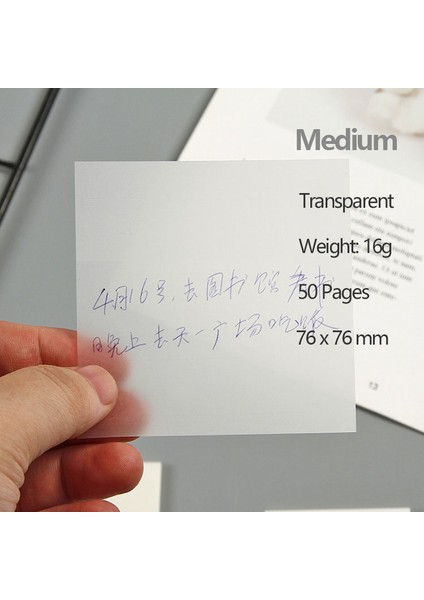 Medium
Transparent
Weight: 16g
50 Pages
76 x 76 mm
4月16号,去图书馆看书
晚上去天一广场吃饭
13